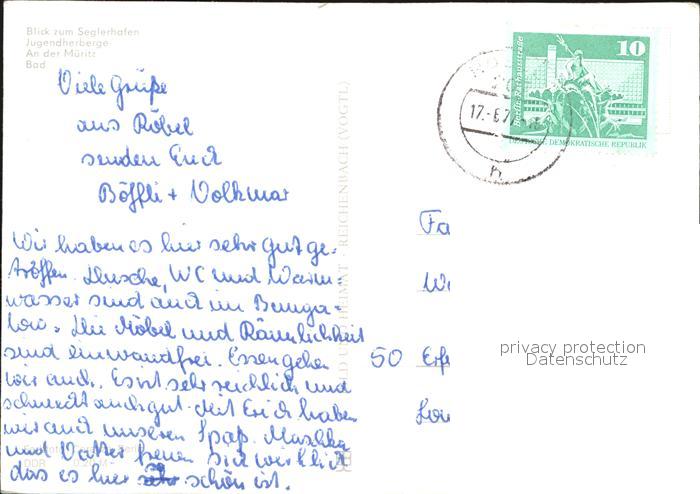 Blick zum Seglerhafen
Jugendherberge
An der Müritz
Bad
Viele Grüße
aus Röbel
senden Euch
Böffli + Volkmar
Wir haben es hier sehr gut ge-
tröffen. Dusche, WC und Warm-
wasser sind auch im Bunga-
low. Die Möbel und Räumlichkeit
sind einwandfrei. Essen gehen
wir auch. Es ist sehr reichlich und
schmeckt auch gut. Mit Erich haben
wir auch unseren Spaß. Maschka
und Vatter freuen sich wirklich
das es hier schön ist.
DDR
REICHENBACH (VOGTL)
10
Rathausstraße
DEUTSCHE DEMOKRATISCHE REPUBLIK
17.-6.7
h
Fa
Wi
50 Erf
privacy protection
Datenschutz